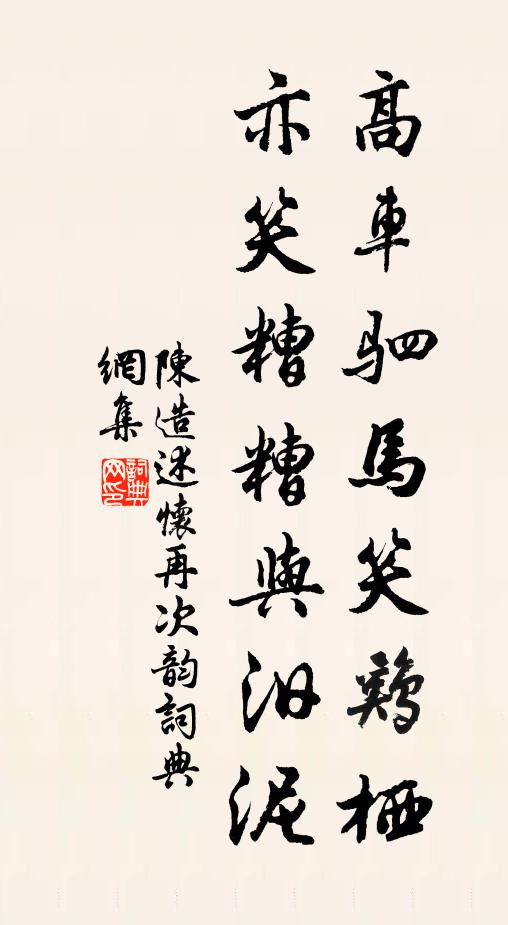 高車駟馬笑鷄栖
亦笑糟糟與汨泥
陳造述懷再次韵詞典
網集
詞典
网印